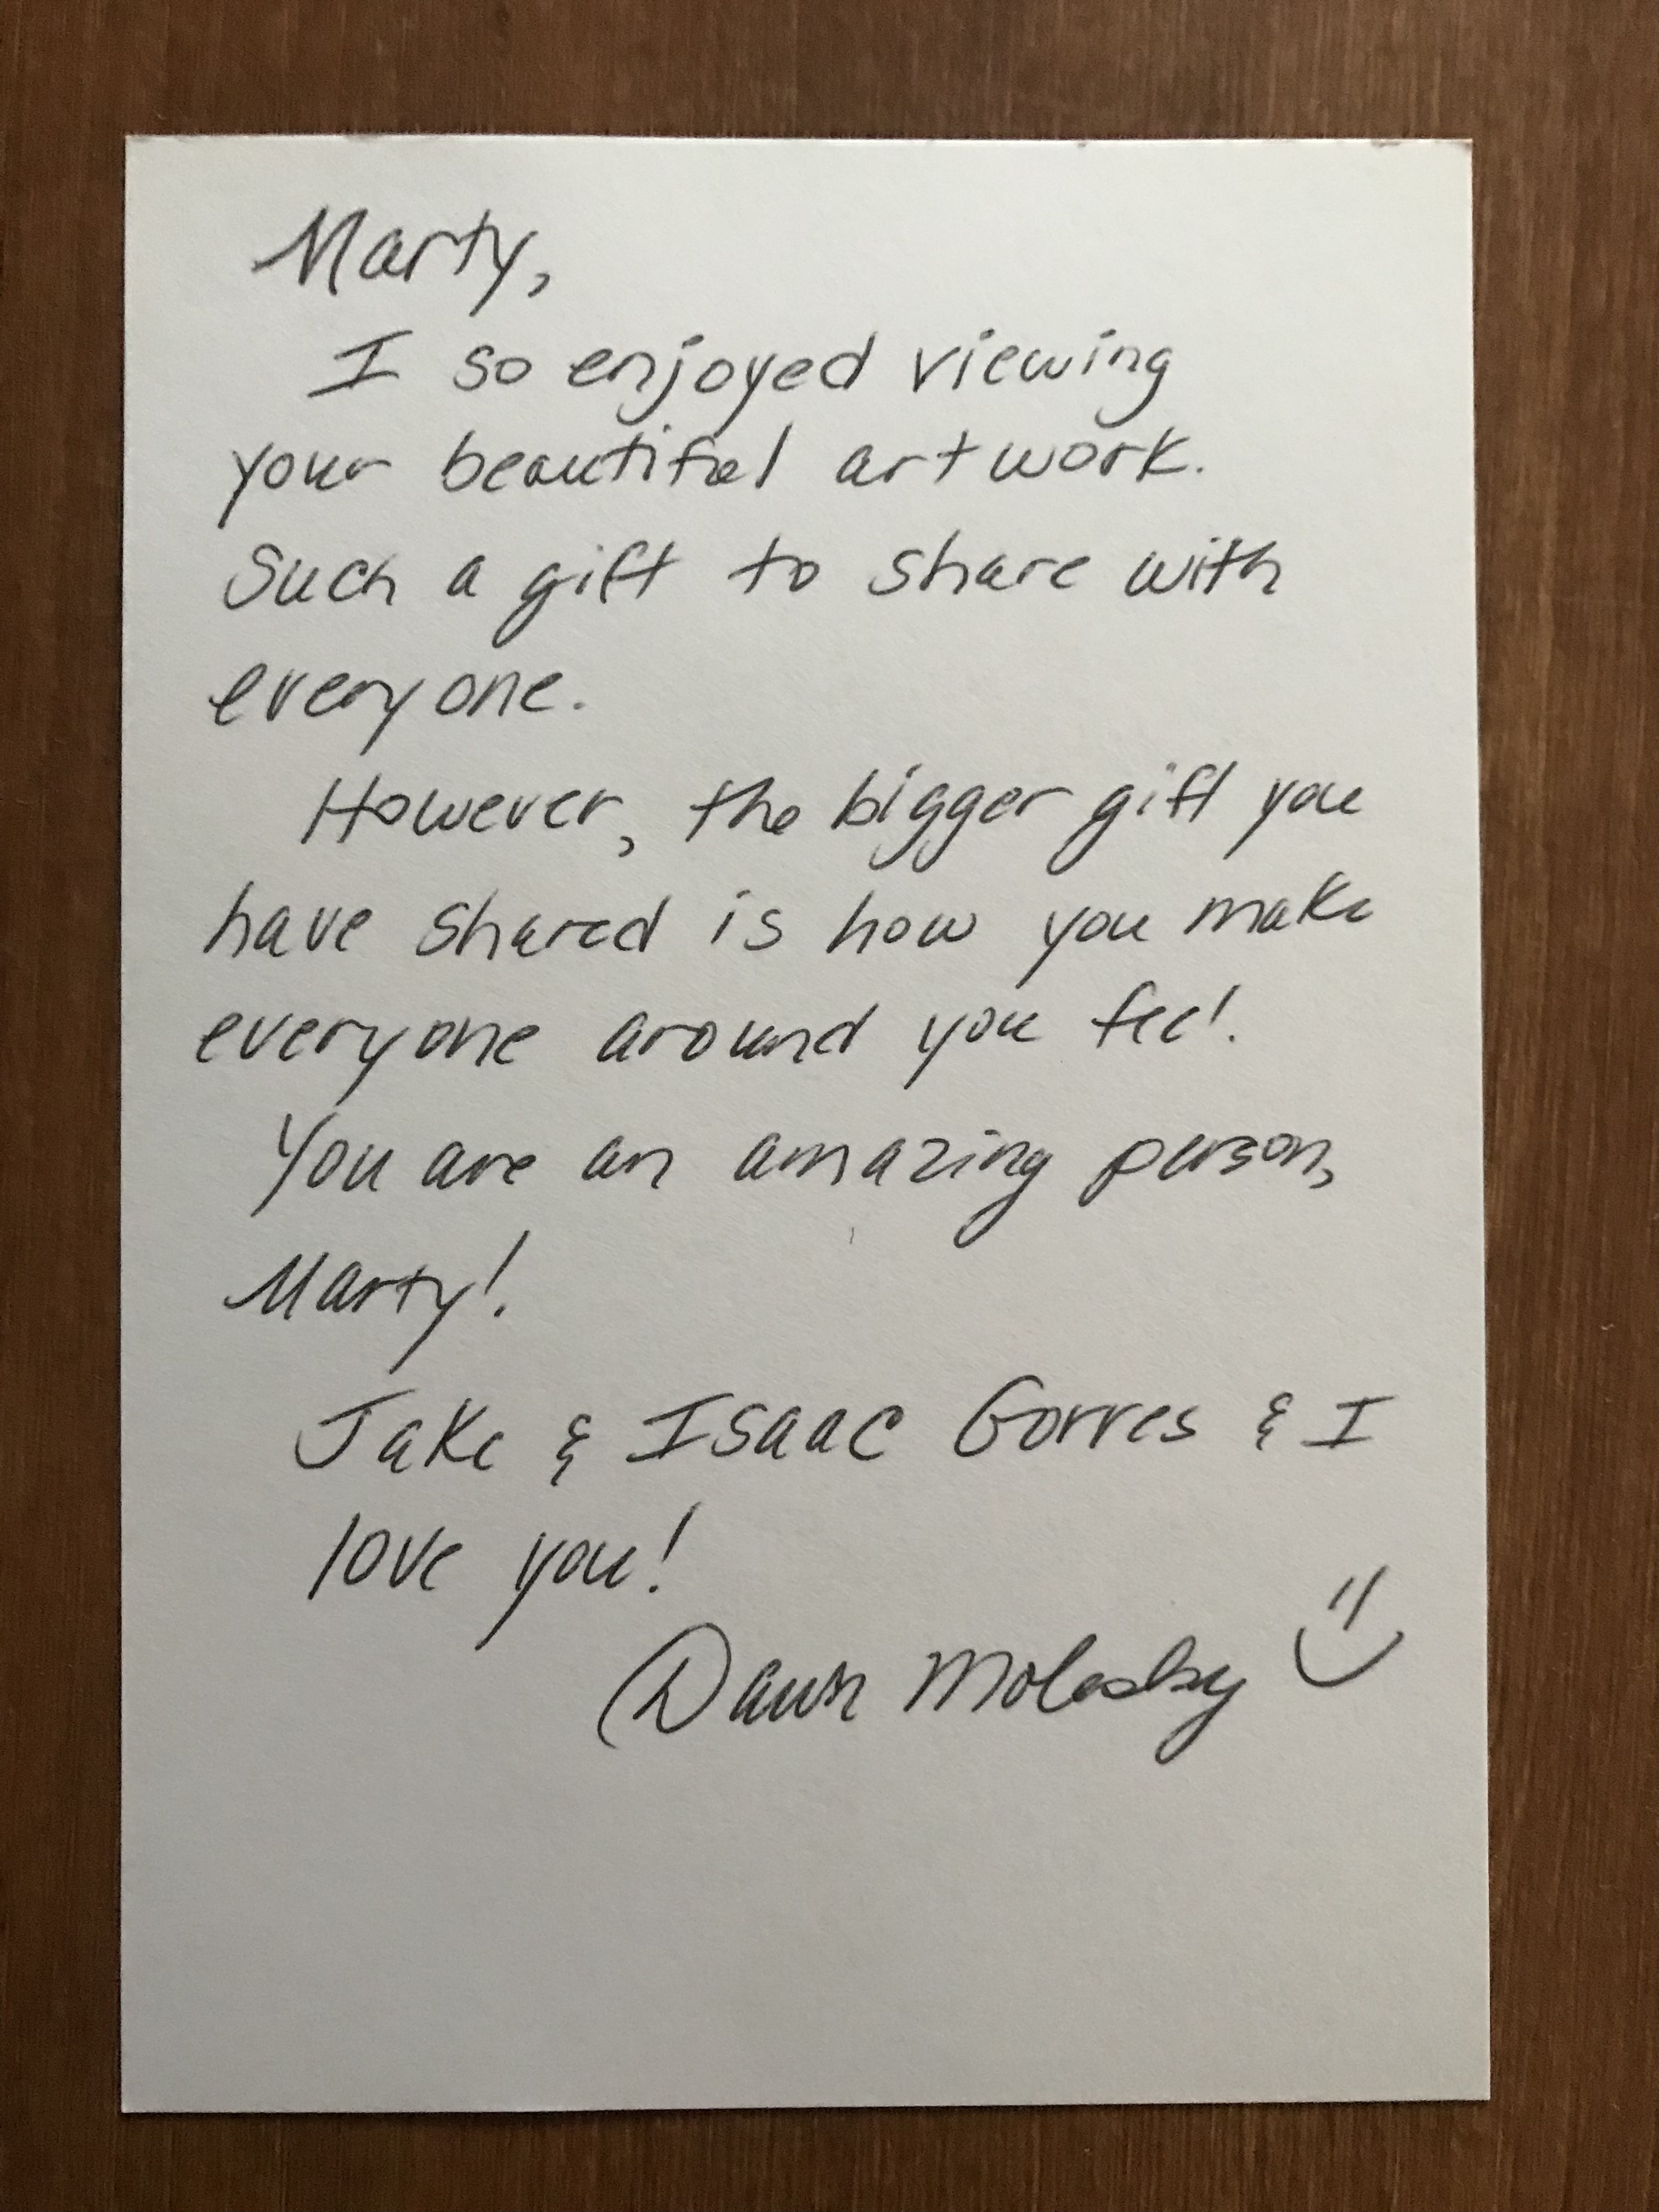 Marty,
I so enjoyed viewing
your beautiful artwork.
Such a gift to share with
everyone.
However, the bigger gift you
have shared is how you make
everyone around you feel.
You are an amazing person,
Marty!
Jake & Isaac Gorres & I
love you!
Dawn